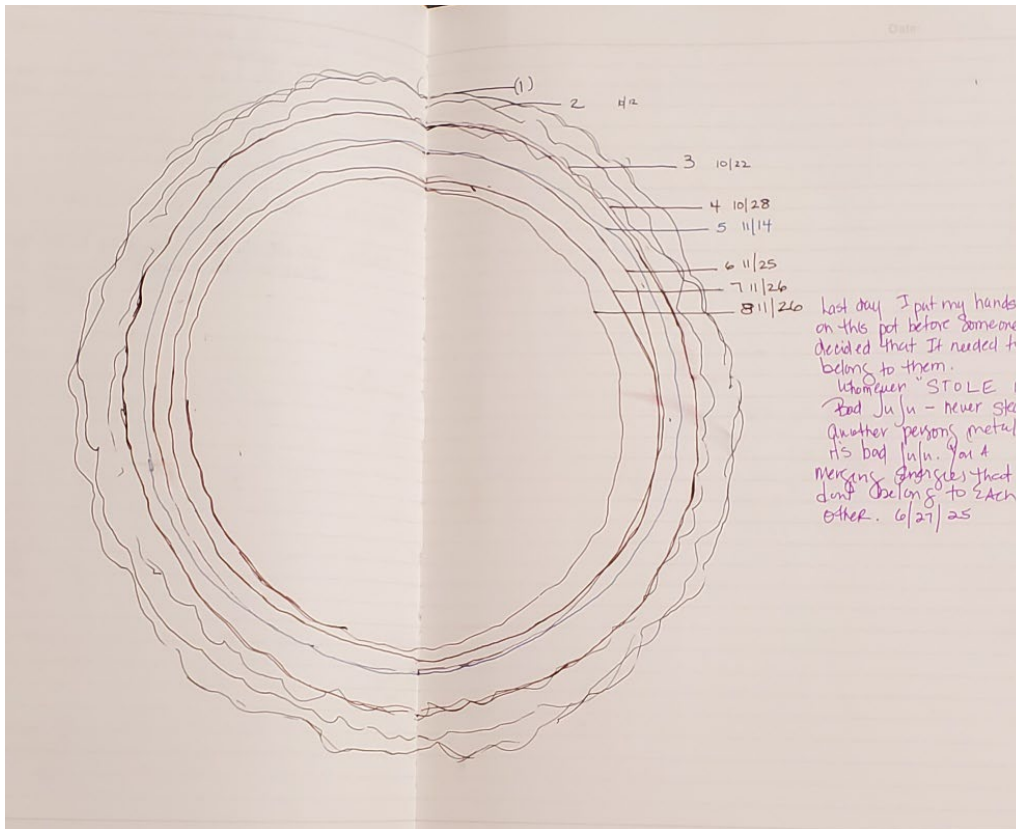 Date:
(1)
2
3 10/22
4 10/28
5 11/14
6 11/25
7 11/26
8 11/26
Last day I put my hands
on this pot before someone
decided that It needed
belong to them.
Whomever "STOLE
Bad JuJu - never
another persons
it's bad JuJu. You
merging Energies that
don't belong to EAch
OtheR. 6/27/25